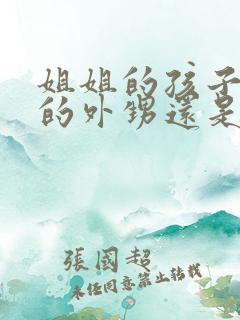 姐姐的孩子
的外甥還是
張國超
未任同意禁止轉載